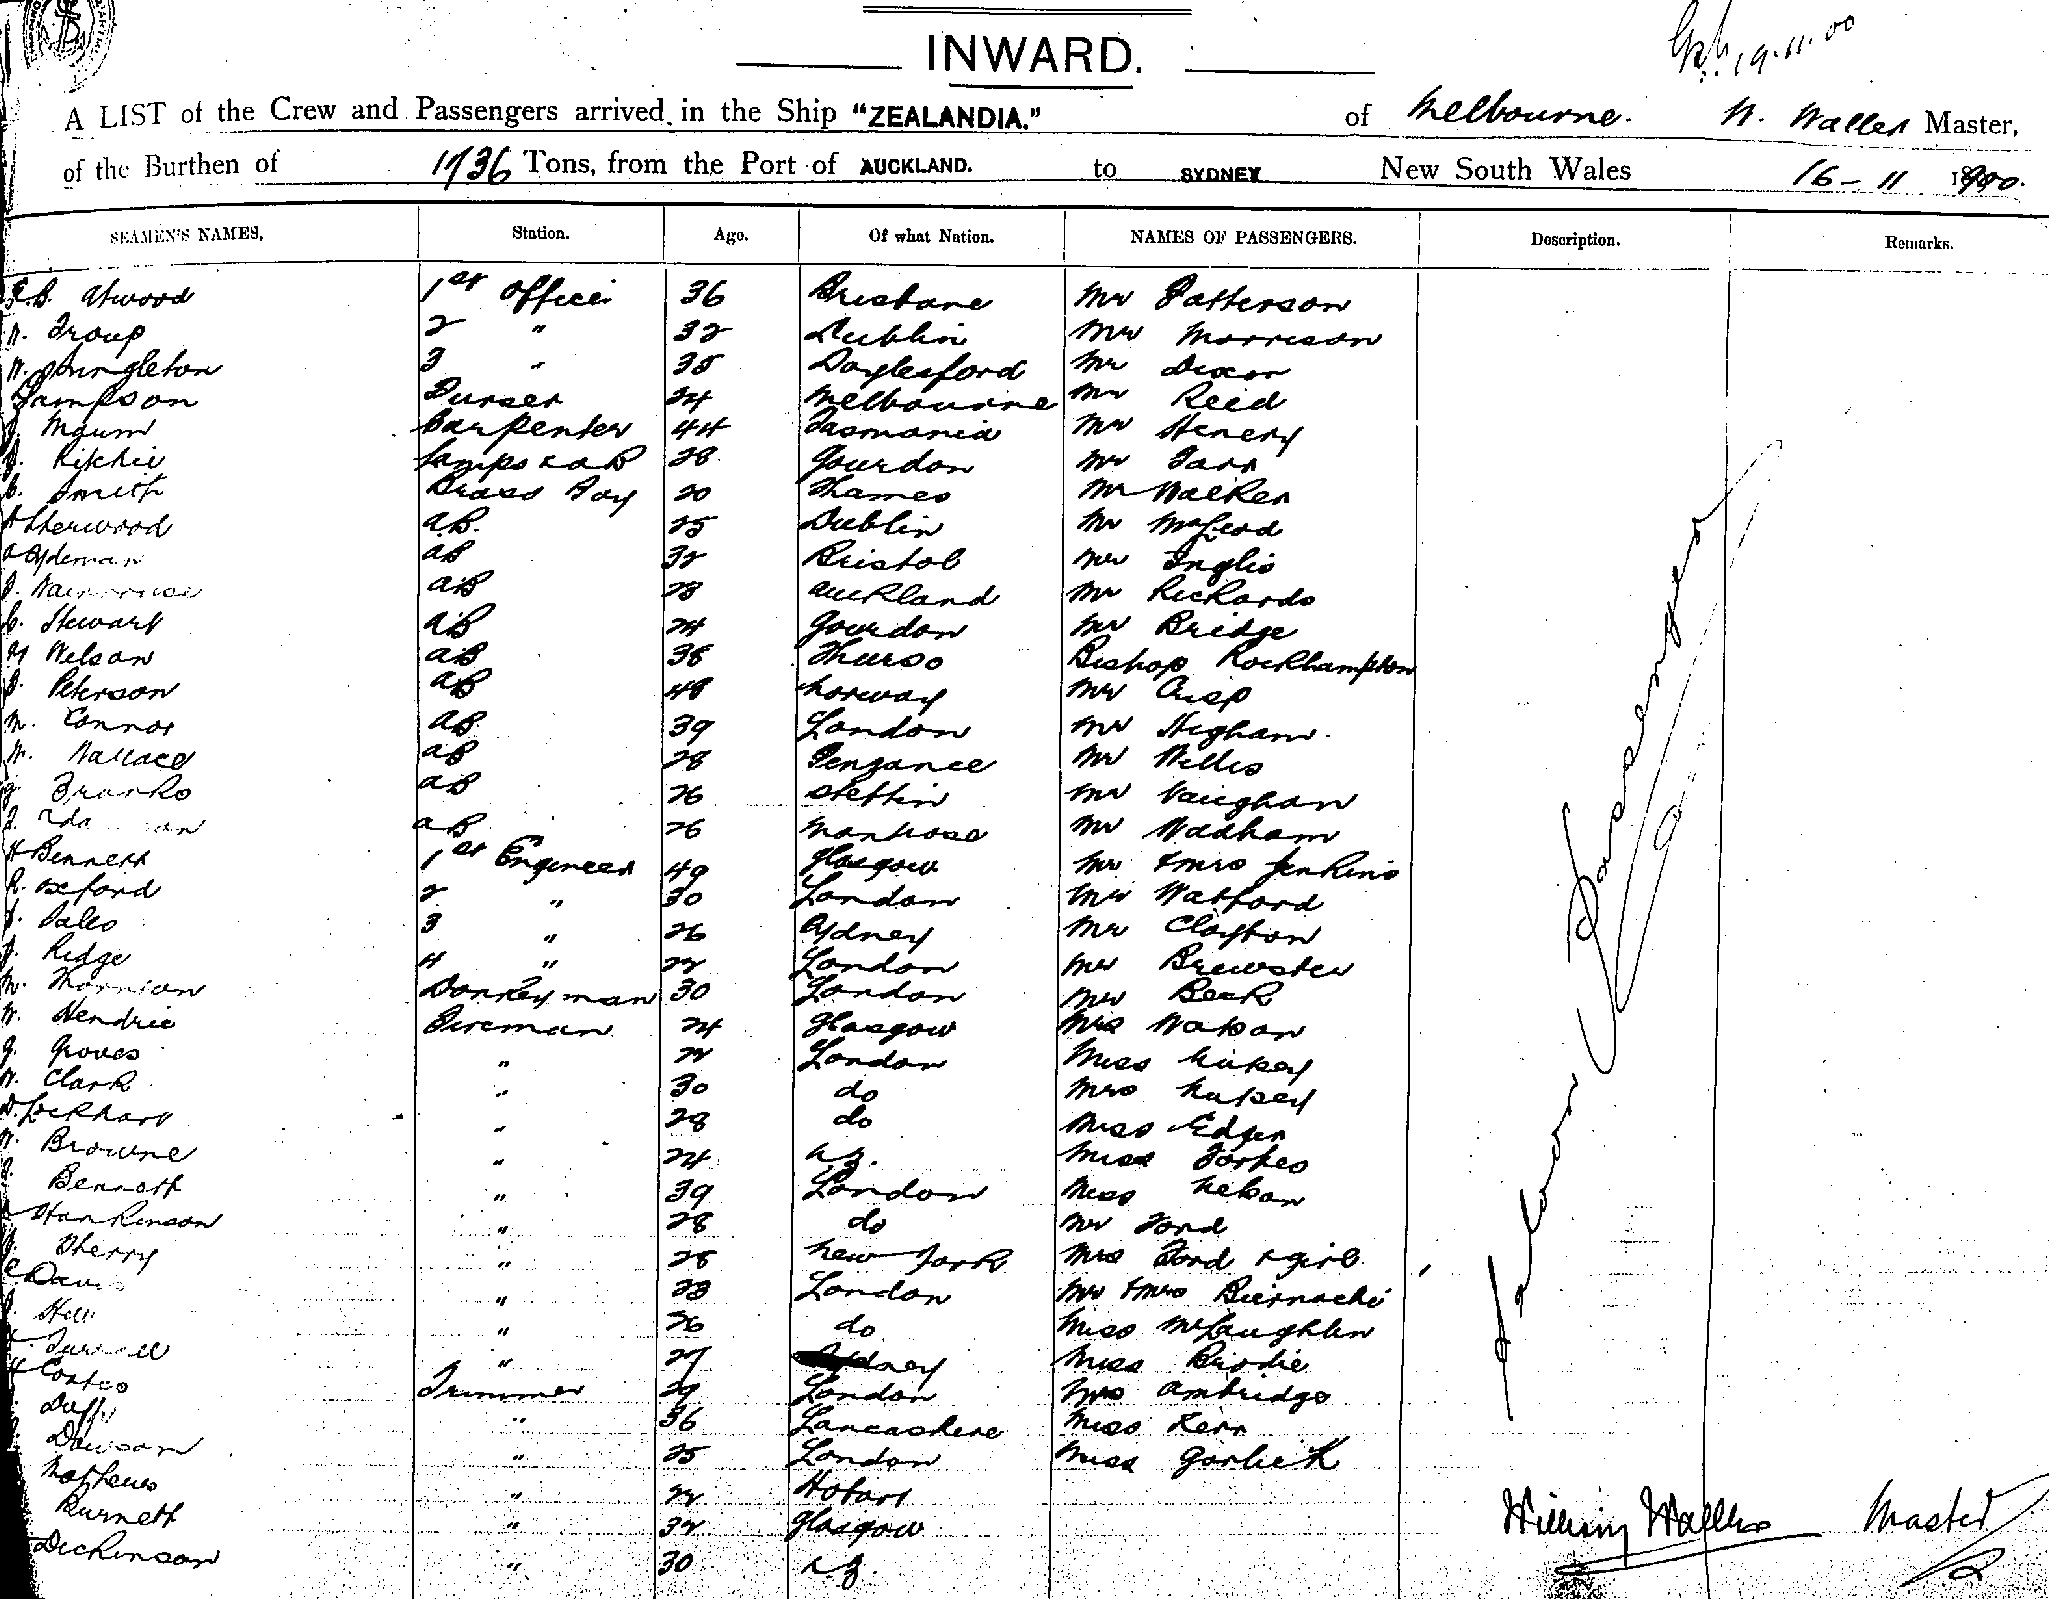 19.11.00
INWARD.
A LIST of the Crew and Passengers arrived in the Ship "ZEALANDIA." of Melbourne. W. Waller Master,
of the Burthen of 1736 Tons, from the Port of AUCKLAND. to SYDNEY New South Wales 16-11 1900.
SEAMEN'S NAMES, Station. Age. Of what Nation. NAMES OF PASSENGERS. Description. Remarks.
Atwood 1st Officer 36 Brisbane Mr Patterson
Troup 2 " 32 Dublin Mr Morrison
Singleton 3 " 35 Daylesford Mr Dixon
Sampson Purser 24 Melbourne Mr Reed
Carpenter 44 Tasmania Mr Henery
Ritchie Lamps & AB 28 Gourdon Mr Tarr
Smith Brass Boy 20 Thames Mr Walker
Sherwood AB. 25 Dublin Mr McLeod
AB 32 Bristol Mr Inglis
AB 28 Auckland Mr Richards
C. Stewart AB 24 Gourdon Mr Bridge
Nelson AB 38 Thurso Bishop Rockhampton
Peterson AB 48 Norway Mr Crisp
Connor AB 39 London Mr Higham.
W. Wallace AB 28 Penzance Mr Willis
AB 26 Stettin Mr Vaughan
AB 26 Montrose Mr Wadham
H Bennett 1st Engineer 49 Glasgow Mr & Mrs Jenkins
R. Oxford 2 " 30 London Watford
3 " 26 Sydney Mr Clayton
Ridge 4 " 22 London Mr Brewster
Donkeyman 30 London Mr Beck
W. Hendrie Fireman 24 Glasgow Mrs Watson
Groves " 22 London Miss
W. Clark " 30 do Mrs
Lockhart " 28 do Miss Edger
W. Browne " 24 N.Z. Miss Forbes
Bennett " 39 London Miss Nelson
Hankinson " 28 do Mr Ford
Sherry " 28 New York Mrs Ford & girl
" 28 London Mr & Mrs Biernacki
" 26 do Miss McLaughlin
" 27 Sydney Miss Brodie
H Coates Trimmer 29 London Mrs Ambridge
Duffy " 36 Lancashire Miss Kerr
Dawson " 25 London Miss Garlick
Mathews " 22 Hobart
Burnett " 32 Glasgow
Dickinson " 30 N.Z.
Saloon Passengers
William Waller Master